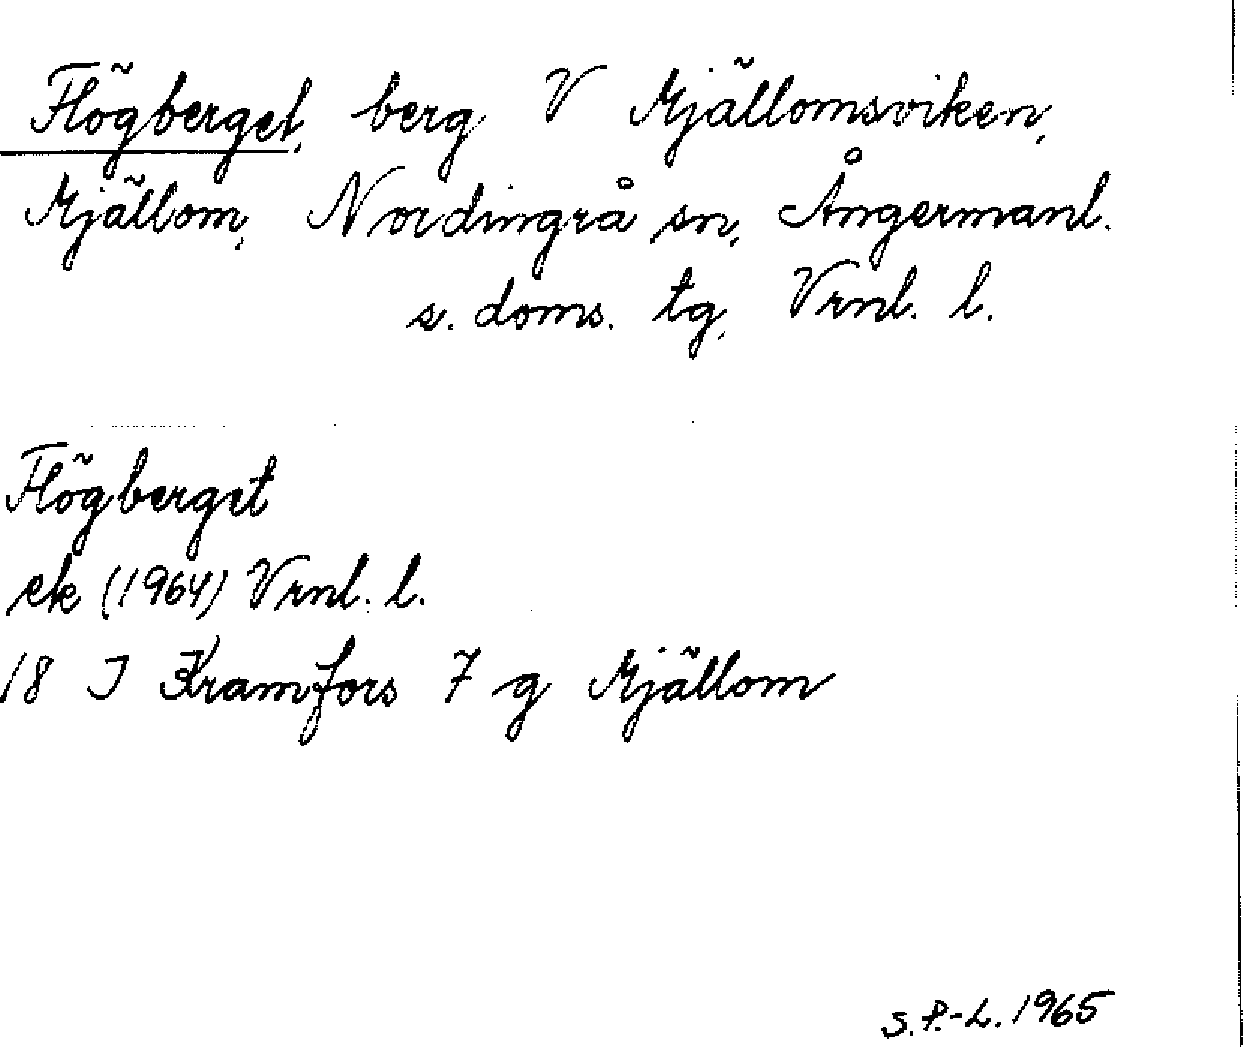 Högberget, berg V Mjällomsviken,
Mjällom, Nordingrå sn, Ångermanl.
s. doms. tg, Vrnl. l.
Högberget
ek (1964) Vrnl. l.
18 J Kramfors 7 g Mjällom
S.P.-L. 1965